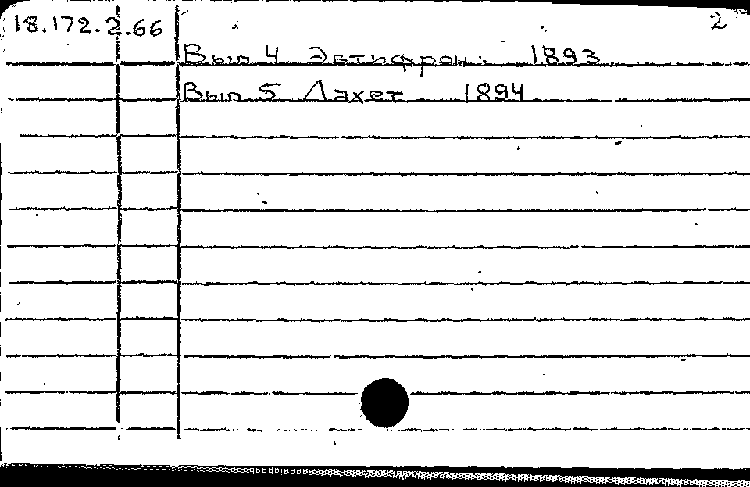 18.172.2.66 2
Вып 4 Эвтифрон. 1893
Вып 5 Лахет 1894